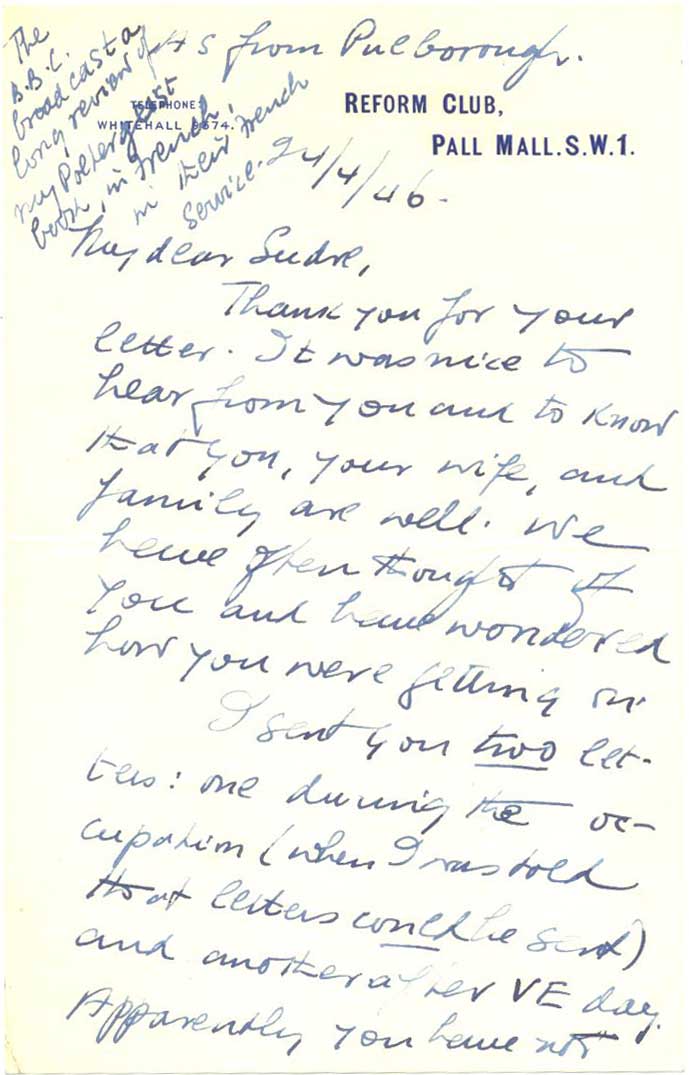 The
B.B.C.
broadcast a
long review of
my Poltergeist
book, in French,
in their French
Service.
As from Pulborough.
TELEPHONE:
WHITEHALL 8574.
REFORM CLUB,
PALL MALL. S.W.1.
24/4/46.
My dear Sudre,
Thank you for your
letter. It was nice to
hear from you and to know
that you, your wife, and
family are well. We
have often thought of
you and have wondered
how you were getting on.
I sent you two let-
ters: one during the oc-
cupation (when I was told
that letters could be sent)
and another after VE day.
Apparently you have not